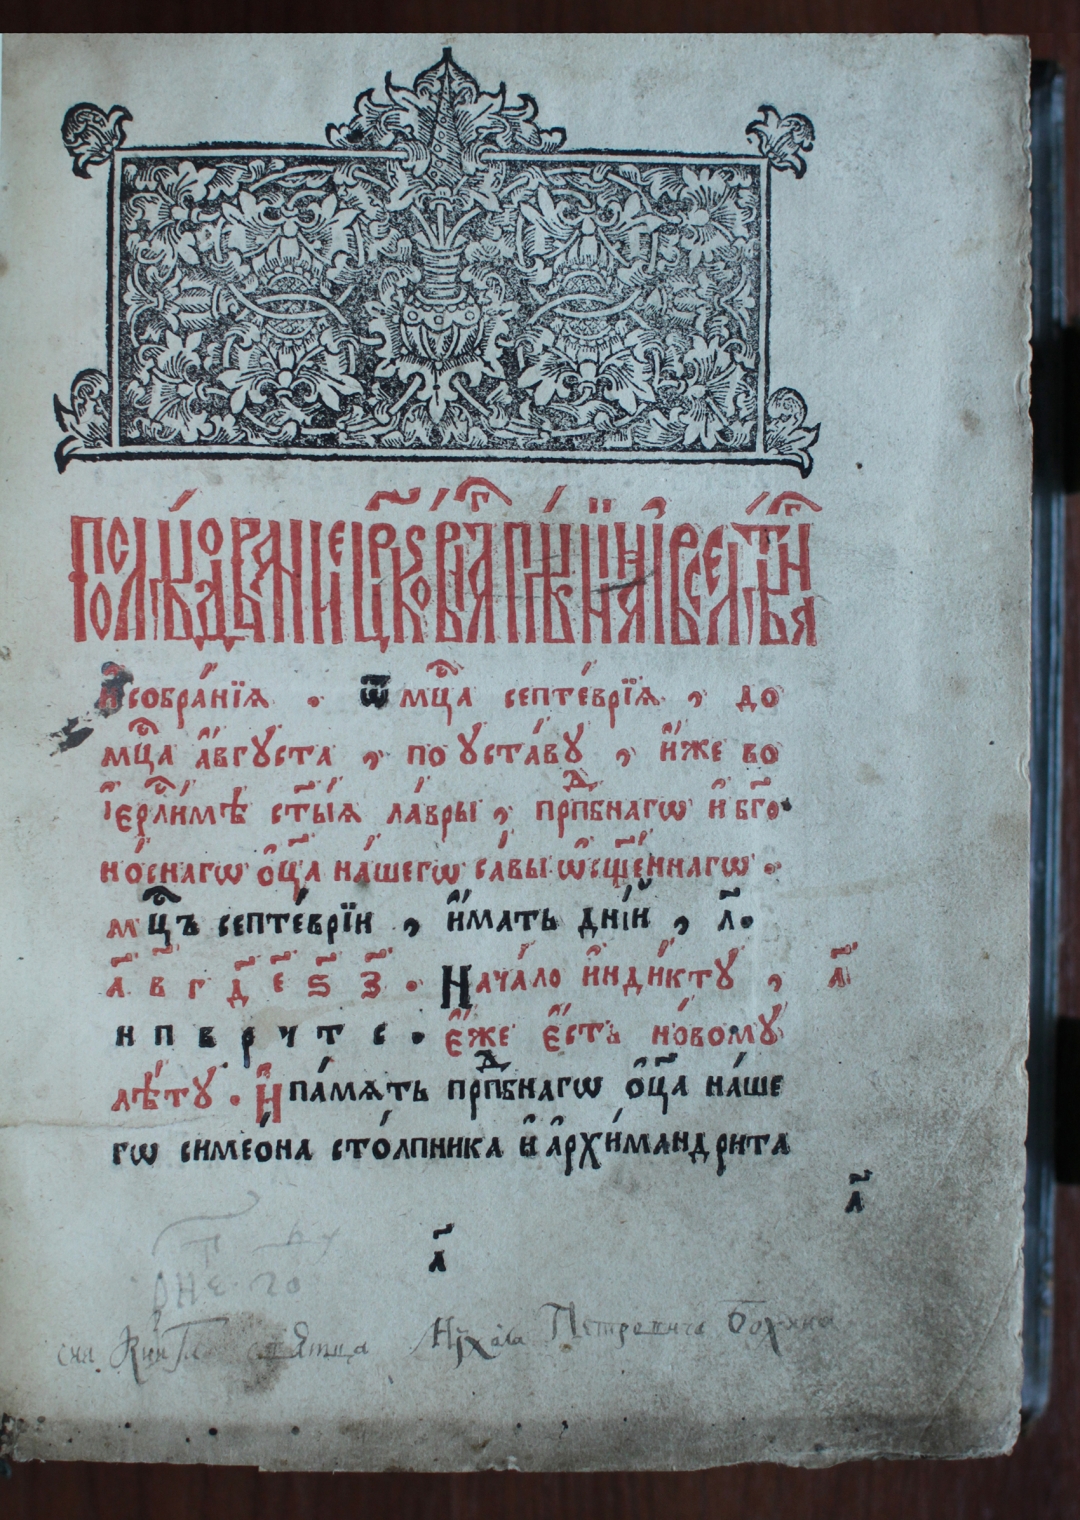 послѣдованїе црк҃ѡвнагѡ пѣнїѧ ѝ вселѣтнагѡ
собра́нїѧ . ѿ мц҃а септе́врїѧ , до
мц҃а а҆́вгꙋста , по ᲂу҆ста́вꙋ , и҆́же во
і҆ерⷭ҇ли́мѣ ст҃ы́ѧ ла́вры , прпⷣбнагѡ и҆ бг҃о
но́снагѡ ѻ҆ц҃а на́шегѡ са́вы ѡ҆сщ҃е́ннагѡ .
мц҃ъ септе́врїй , и҆́мать дні́й , л҃ .
а҃ в҃ г҃ д҃ е҃ ѕ҃ з҃ . Нача́ло и҆нди́ктꙋ , а҃
н п в р ч т с . є҆́же є҆́сть но́вомꙋ
лѣ́тꙋ . И҆ па́мѧть прпⷣбнагѡ ѻ҆ц҃а на́ше
гѡ симеѡ́на сто́лпника и҆ а҆рхїма́ндрита
а҃
а҃
Петровича